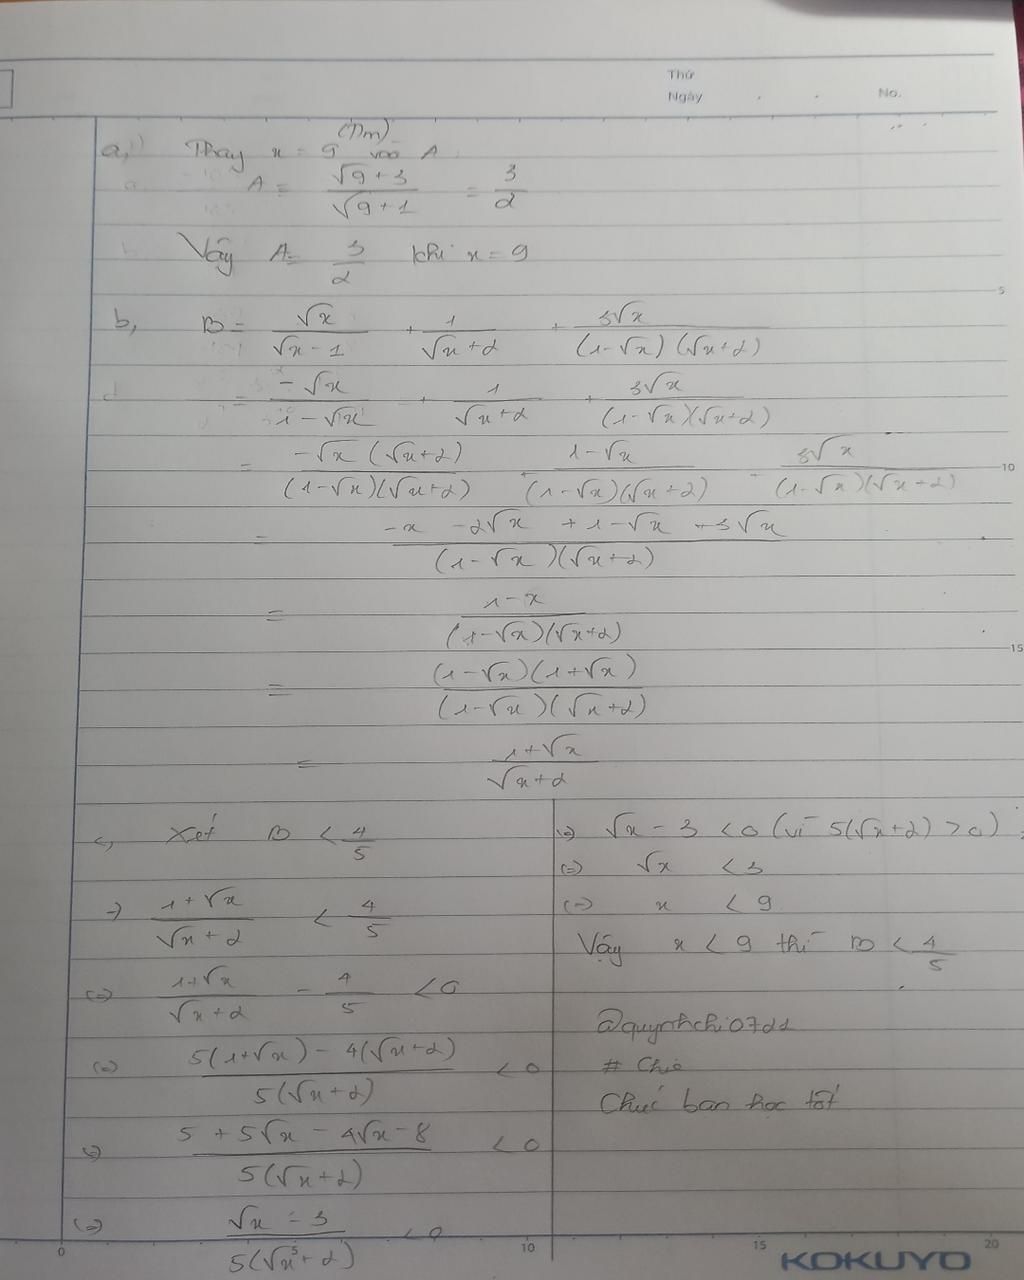 Thứ
Ngày . . No.
a, Thay x = 9 (TM) vào A
A = √9+3 / √9+1 = 3/2
Vậy A = 3/2 khi x = 9
b, B = √x / √x-1 + 1 / √x+2 + 3√x / (1-√x)(√x+2)
= -√x / 1-√x + 1 / √x+2 + 3√x / (1-√x)(√x+2)
= -√x(√x+2) / (1-√x)(√x+2) + 1-√x / (1-√x)(√x+2) + 3√x / (1-√x)(√x+2)
= -x -2√x +1-√x +3√x / (1-√x)(√x+2)
= 1-x / (1-√x)(√x+2)
= (1-√x)(1+√x) / (1-√x)(√x+2)
= 1+√x / √x+2
c, Xét B < 4/5
=> 1+√x / √x+2 < 4/5
(=) 1+√x / √x+2 - 4/5 < 0
(=) 5(1+√x) - 4(√x+2) / 5(√x+2) < 0
(=) 5 + 5√x - 4√x - 8 / 5(√x+2) < 0
(=) √x - 3 / 5(√x+2) < 0
(=) √x - 3 < 0 (vì 5(√x+2) > 0)
(=) √x < 3
(=) x < 9
Vậy x < 9 thì B < 4/5
@quynhchi0721
# Chie
Chúc bạn học tốt
0 5 10 15 20
5
10
15
KOKUYO